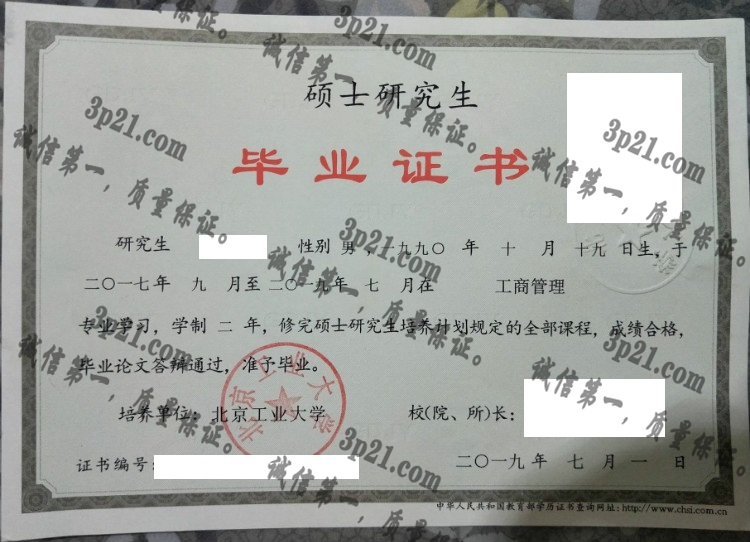 硕士研究生
毕业证书
研究生 性别 男，一九九〇 年 十 月 十九 日生，于
二〇一七年 九 月至二〇一九年 七 月在 工商管理
专业学习，学制 二 年，修完硕士研究生培养计划规定的全部课程，成绩合格，
毕业论文答辩通过，准予毕业。
培养单位：北京工业大学 校(院、所)长：
证书编号：
二〇一九年 七 月 一 日
中华人民共和国教育部学历证书查询网址：http://www.chsi.com.cn
北京工业大学
3p21.com
诚信第一，质量保证。
3p21.com
诚信第一，质量保证。
3p21.com
诚信第一，质量保证。
3p21.com
诚信第一，质量保证。
3p21.com
诚信第一，质量保证。
3p21.com
诚信第一，质量保证。
3p21.com
诚信第一，质量保证。
质量保证。